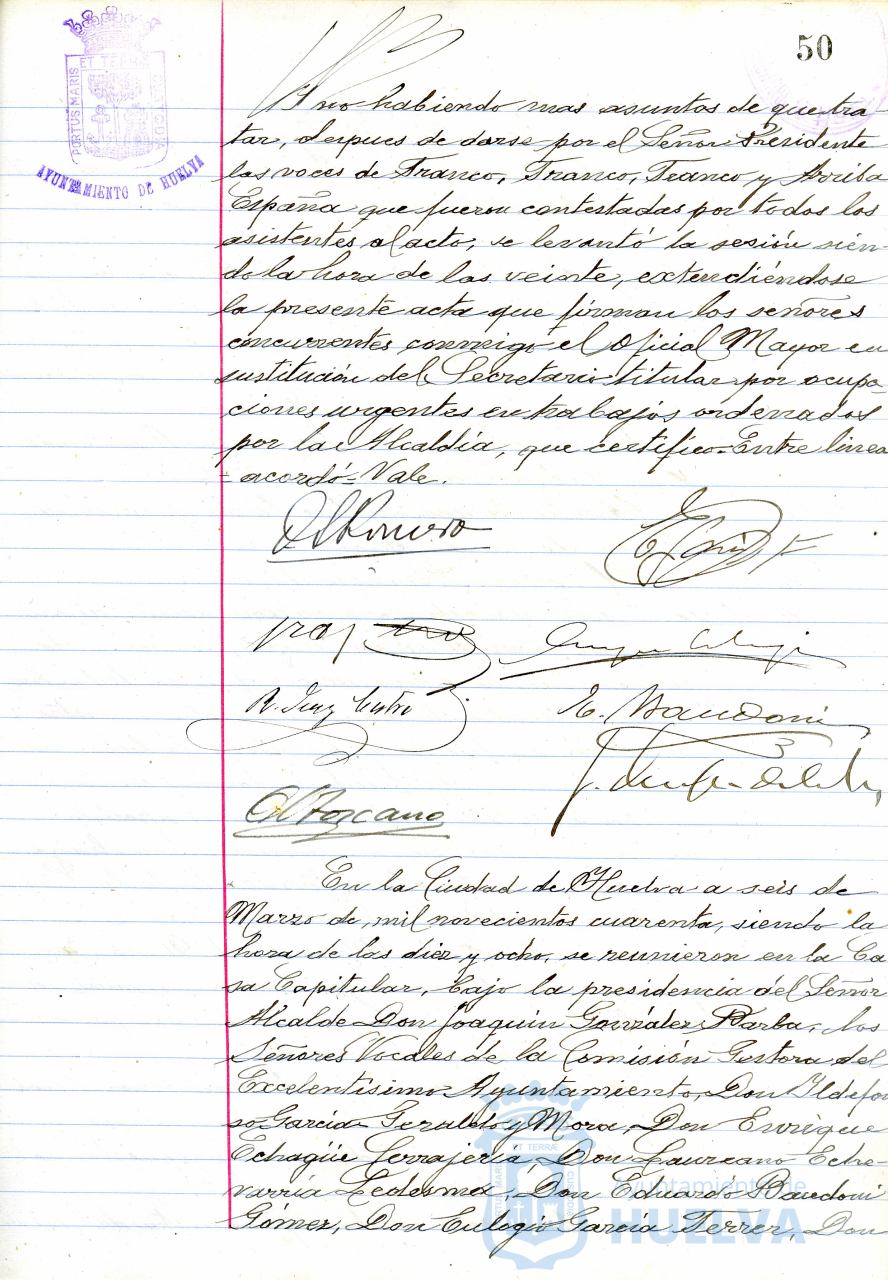 50
PORTUS MARIS ET TERRÆ CUSTODIA
AYUNTAMIENTO DE HUELVA
Y no habiendo mas asuntos de que tra-
tar, despues de darse por el Señor Presidente
las voces de Franco, Franco, Franco y Arriba
España que fueron contestadas por todos los
asistentes al acto, se levantó la sesión sién-
do la hora de las veinte, extendiéndose
la presente acta que firman los señores
concurrentes conmigo el Oficial Mayor en
sustitución del Secretario titular por ocupa-
ciones urgentes en trabajos ordenados
por la Alcaldía, que certifico=Entre linea
=acordó=Vale.
E. Baudoni
En la Ciudad de Huelva a seis de
Marzo de mil novecientos cuarenta, siendo la
hora de las diez y ocho, se reunieron en la Ca
sa Capitular, bajo la presidencia del Señor
Alcalde Don Joaquin González Barba, los
Señores Vocales de la Comisión Gestora del
Excelentísimo Ayuntamiento, Don Ildefon
so García y Mora, Don Enrique
Echagüe Cerrajería, Don Laureano Eche-
varría Ledesma, Don Eduardo Baudoni
Gómez, Don Eulogio García Ferrer, Don
Ayuntamiento de
HUELVA